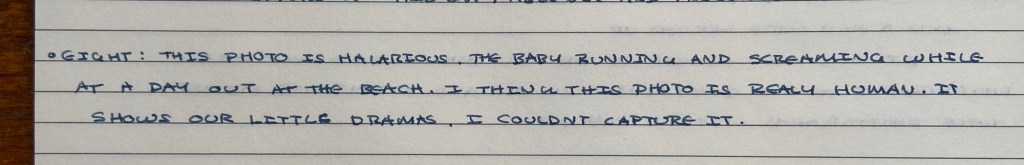 • EIGHT: THIS PHOTO IS HALARIOUS. THE BABY RUNNING AND SCREAMING WHILE
AT A DAY OUT AT THE BEACH. I THINK THIS PHOTO IS REALY HUMAN. IT
SHOWS OUR LITTLE DRAMAS. I COULDNT CAPTURE IT.